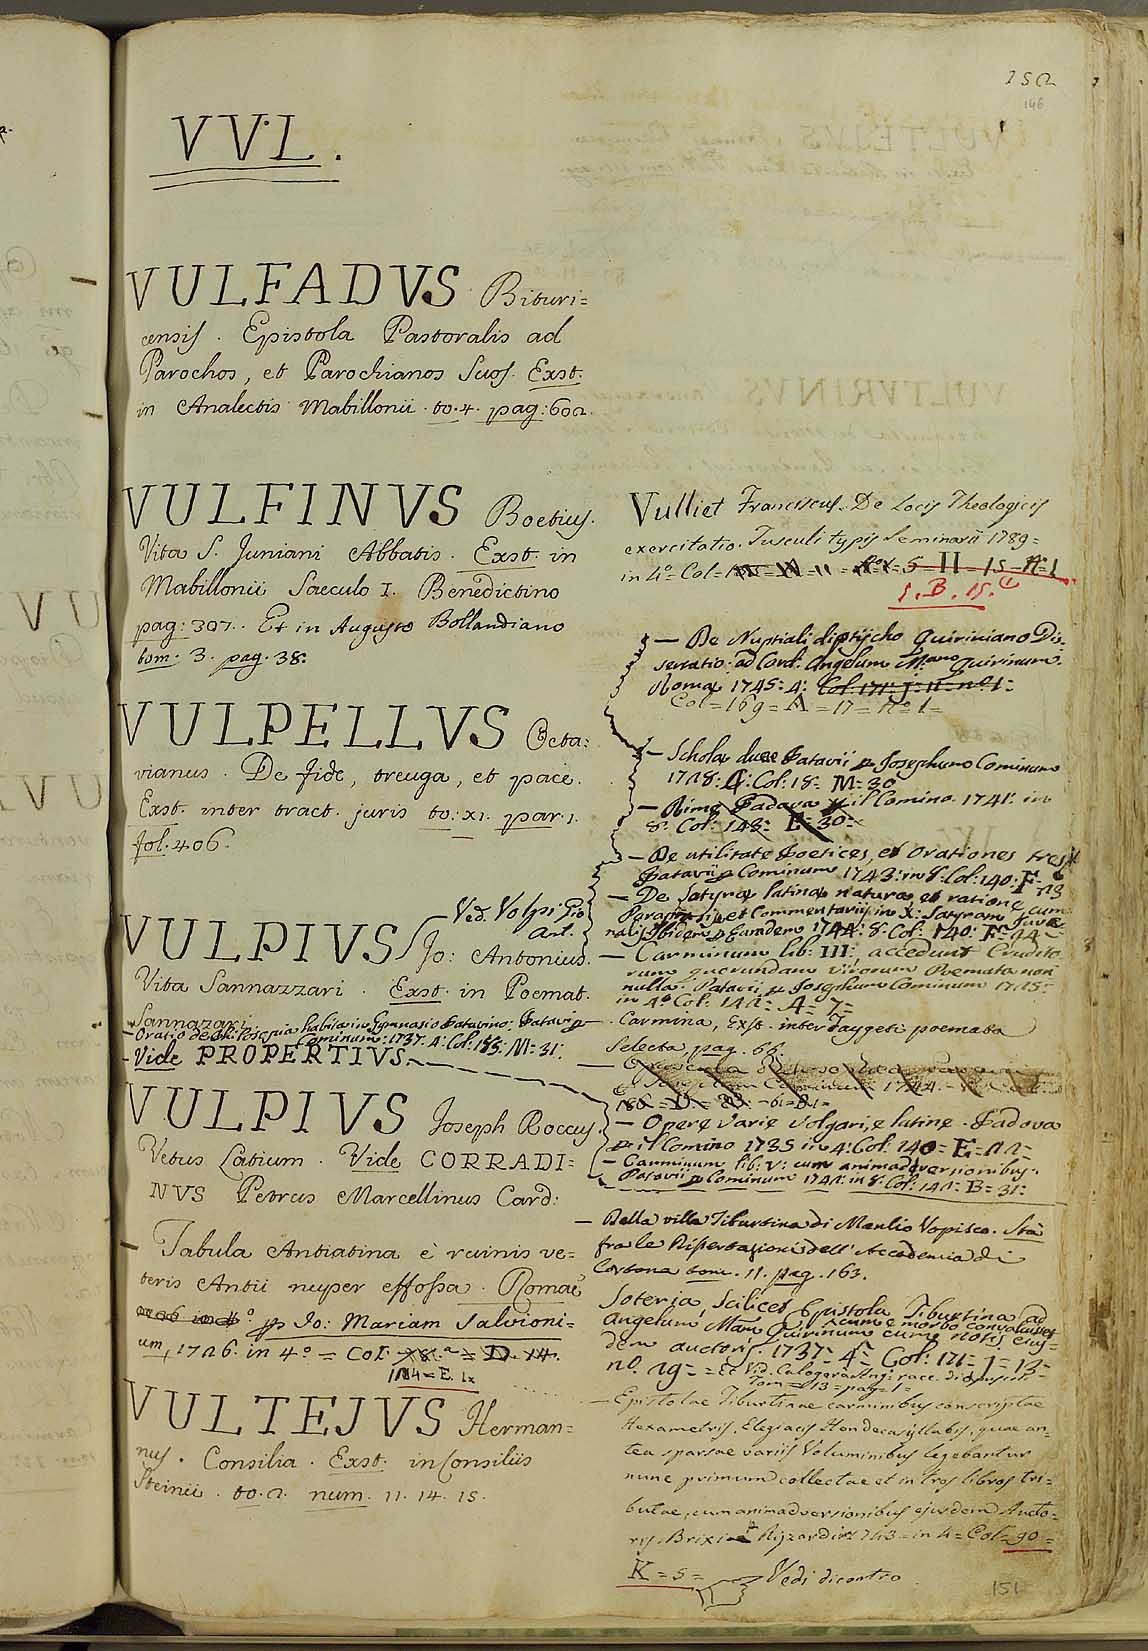 152
146
VVL.
VULFADVS Bituri=
censis. Epistola Pastoralis ad
Parochos, et Parochianos Suos. Exst.
in Analectis Mabillonii. to. 4. pag: 602.
VULFINVS Boetius.
Vita S. Juniani Abbatis. Exst. in
Mabillonii Saeculo I. Benedictino
pag: 307. Et in Augusto Bollandiano
tom. 3. pag. 38.
VULPELLVS Octa:
vianus. De fide, treuga, et pace.
Exst. inter tract. juris to: XI. par. 1.
fol. 406.
Ved. Volpi Gio
Ant.
VULPIVS Jo: Antonius.
Vita Sannazzari. Exst. in Poemat.
Sannazari
- Oratio de habita in Gymnasio Patavino: Patavii
Cominum: 1737. 4: Col: 183. M=31.
- Vide PROPERTIVS
VULPIVS Joseph Roccus.
Vetus Latium. Vide CORRADI=
NVS Petrus Marcellinus Card:
- Tabula Antiatina è ruinis ve=
teris Antii nuper effossa. Romae
in 4º p Jo: Mariam Salvioni=
um, 1726. in 4º = Col D. 14.
184 = E. 12
VULTEJVS Herman=
nus. Consilia. Exst. in Consiliis
Steinii. to. 2. num. 11. 14. 15.
Vulliet Franciscus. De Locis Theologicis
exercitatio. Tusculi typis Seminarii 1789=
in 4º = Col = 5 - II - 15 - Nº 1
5. B. 15. (1)
- De Nuptiali diptijcho Quiriniano Dis-
sertatio: ad Card. Angelum M.ano Quirinum.
Roma 1745: 4: Col: 171: j=11=nº1:
Col = 169 = A = 17 = Nº 1=
- Scholae duae Patavii p Josephum Cominum
1728: 4: Col: 18= M=30
- Rime Padova p il Comino. 1741: in
8º Col: 143= E=30=
- De utilitate Poetices, et orationes tres
Patavii p Cominum 1743: in 8: Col: 140. F=
- De Satyrae latinae natura, et ratione cum
Paraphrasi, et Commentariis in X: Satyram Juve
nalis Ibidem p Eumdem 1744: 8: Col: 140: F=
- Carminum lib: III: accedunt Erudito-
rum quorundam virorum Poemata non
nulla. Patavii p Josephum Cominum 1725=
in 4º Col: 142= A=7=
- Carmina, Exst. inter Taygeti poemata
Selecta, pag. 66.
- Opuscula
p Josephum Cominum 1744.
186
- Opere varie volgari, e latine. Padova
p il Comino 1735 in 4: Col: 140= E=22=
- Carminum lib: V: cum animadversionibus.
Patavii p Cominum 1742: in 8: Col: 142= B=31:
- Della villa Tiburtina di Manlio Vopisco. Sta
fra le Dissertazioni dell' Accademia di
Cortona tom. 11. pag. 163.
Soteria, Scilicet Epistola Tiburtina ad
Angelum Mam Quirinum cum e morbo convaluisset
cum notis ejus=
dem auctoris. 1737: 4= Col: 171= J=13=
nº. 29= = Et Vid. Calogerà Ang: racc. di opuscoli
Tom = 13 = pag = 1=
- Epistolae Tiburtinae carminibus conscriptae
Hexametris, Elegiacis Hendecasyllabis, quae an-
tea sparsae variis Voluminibus legebantur
nunc primum collectae et in tres libros tri-
butae, cum animadversionibus ejusdem Aucto-
ris. Brixiae Rizzardi 1743 = in 4 = Col = 90 =
K = 5 = Vedi dicontro
151